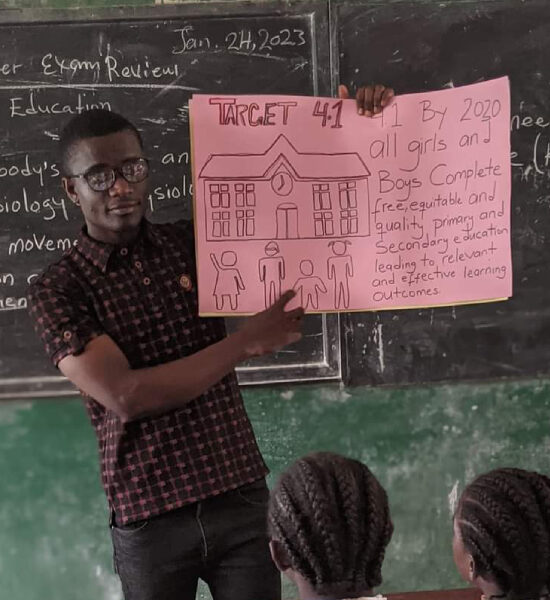 Jan. 24, 2023
er Exam Review
Education
ody's
an
biology
movem
on
TARGET 4.1
4.1 By 2020
all girls and
Boys Complete
free, equitable and
quality primary and
Secondary education
leading to relevant
and effective learning
outcomes.